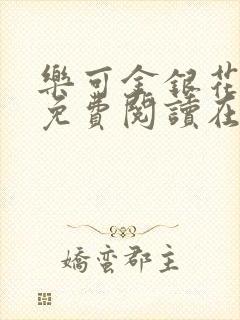 樂可金銀花
免費閱讀在
嬌蠻郡主